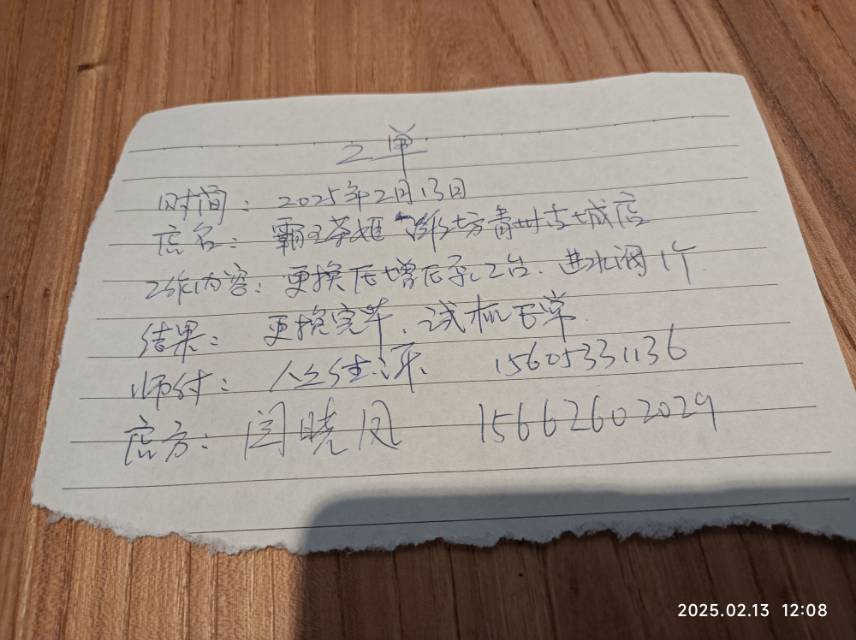 工单
时间：2025年2月13日
店名：霸王茶姬 潍坊青州古城店
工作内容：更换压增压泵2台．进水阀1个
结果：更换完毕．试机正常
师付： 15605331136
店方：闫晓凤 15662602029
2025.02.13 12:08